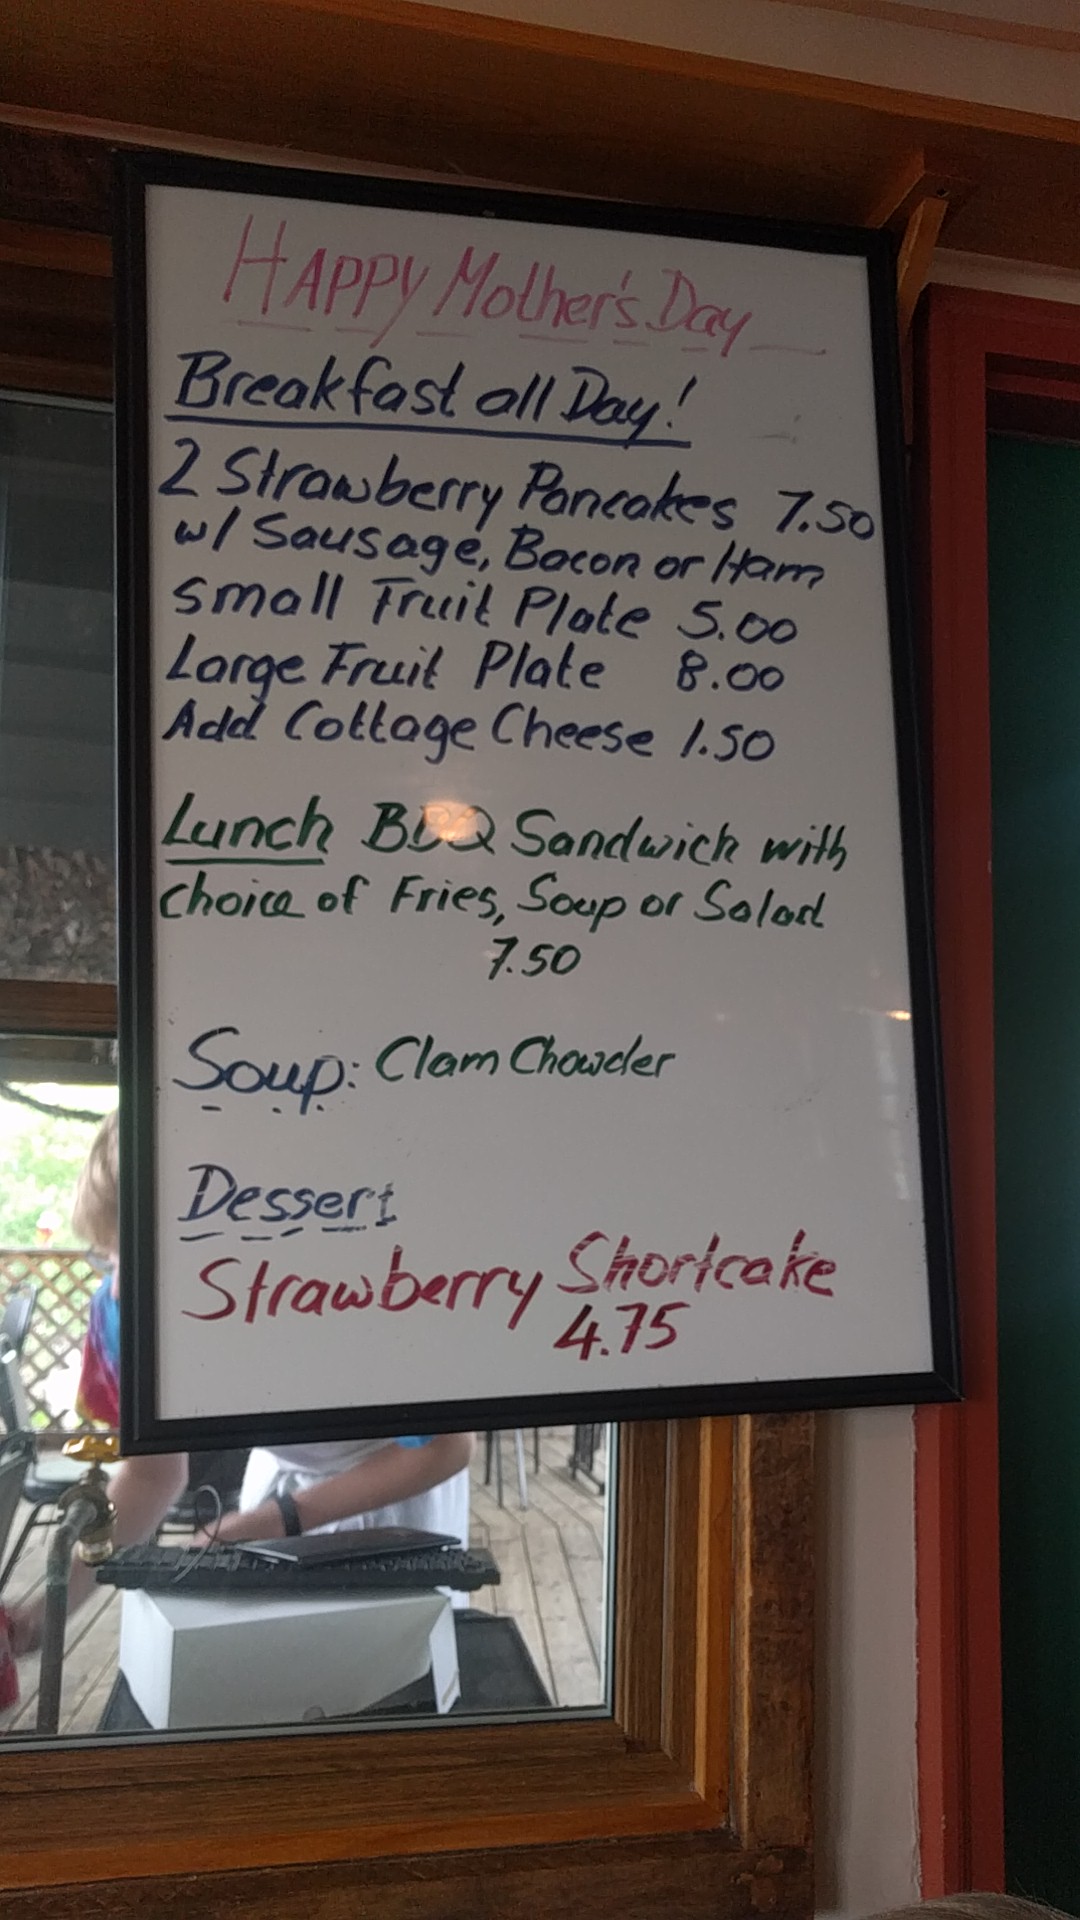 HAPPY Mother's Day
Breakfast all Day!
2 Strawberry Pancakes 7.50
w/ Sausage, Bacon or Ham
small Fruit Plate 5.00
Large Fruit Plate 8.00
Add Cottage Cheese 1.50
Lunch BBQ Sandwich with
choice of Fries, Soup or Salad
7.50
Soup: Clam Chowder
Dessert
Strawberry Shortcake
4.75